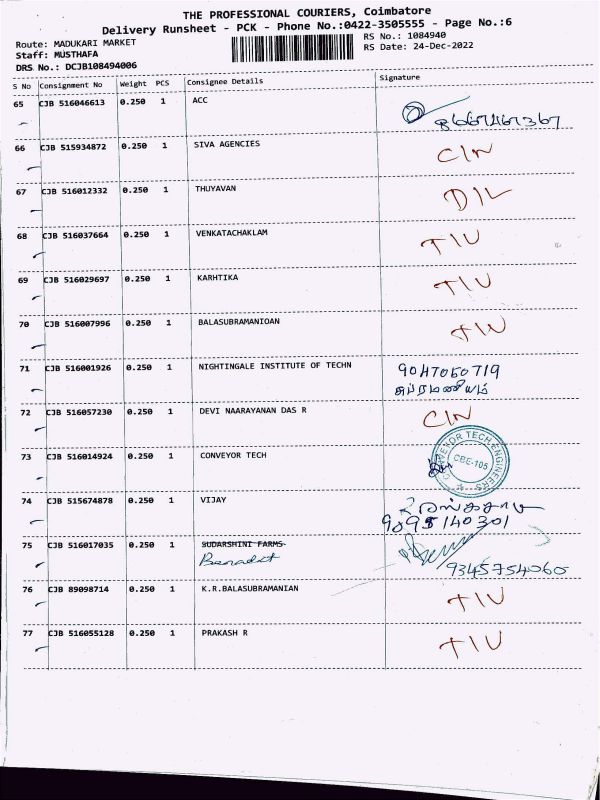 THE PROFESSIONAL COURIERS, Coimbatore
Delivery Runsheet - PCK - Phone No.:0422-3505555 - Page No.:6
Route: MADUKARI MARKET RS No.: 1084940
Staff: MUSTHAFA RS Date: 24-Dec-2022
DRS No.: DCJB108494006
S No Consignment No Weight PCS Consignee Details Signature
65 CJB 516046613 0.250 1 ACC
66 CJB 515934872 0.250 1 SIVA AGENCIES CIN
67 CJB 516012332 0.250 1 THUYAVAN D/L
68 CJB 516037664 0.250 1 VENKATACHAKLAM TIU
69 CJB 516029697 0.250 1 KARHTIKA TIU
70 CJB 516007996 0.250 1 BALASUBRAMANIOAN TIU
71 CJB 516001926 0.250 1 NIGHTINGALE INSTITUTE OF TECHN 9047060719
சுப்ரமணியம்
72 CJB 516057230 0.250 1 DEVI NAARAYANAN DAS R CIN
73 CJB 516014924 0.250 1 CONVEYOR TECH CONVEYOR TECH ENGINEERS CBE-105
74 CJB 515674878 0.250 1 VIJAY
9095140301
75 CJB 516017035 0.250 1 SUDARSHINI FARMS
Benadct 9345754060
76 CJB 89098714 0.250 1 K.R.BALASUBRAMANIAN TIU
77 CJB 516055128 0.250 1 PRAKASH R TIU